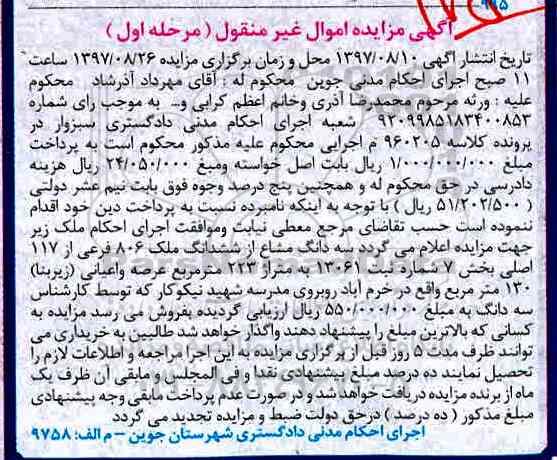 ۹۹۵
آگهی مزایده اموال غیر منقول ( مرحله اول )
تاریخ انتشار اگهی ۱۳۹۷/۰۸/۱۰ محل و زمان برگزاری مزایده ۱۳۹۷/۰۸/۲۶ ساعت
۱۱ صبح اجرای احکام مدنی جوین محکوم له : آقای مهرداد آذرشاد محکوم
علیه : ورثه مرحوم محمدرضا آذری وخانم اعظم کرابی و... به موجب رای شماره
۹۲۰۹۹۸۵۱۸۳۴۰۰۸۵۳ شعبه اجرای احکام مدنی دادگستری سبزوار در
پرونده کلاسه ۹۶۰۲۰۵ م اجرایی محکوم علیه مذکور محکوم است به پرداخت
مبلغ ۱/۰۰۰/۰۰۰/۰۰۰ ریال بابت اصل خواسته ومبغ ۲۴/۰۵۰/۰۰۰ ریال هزینه
دادرسی در حق محکوم له و همچنین پنج درصد وجوه فوق بابت نیم عشر دولتی
( ۵۱/۲۰۲/۵۰۰ ریال ) با توجه به اینکه نامبرده نسبت به پرداخت دین خود اقدام
ننموده است حسب تقاضای مرجع معطی نیابت وموافقت اجرای احکام ملک زیر
جهت مزایده اعلام می گردد سه دانگ مشاع از ششدانگ ملک ۸۰۶ فرعی از ۱۱۷
اصلی بخش ۷ شماره ثبت ۱۳۰۶۱ به متراژ ۲۲۳ مترمربع عرصه واعیانی (زیربنا)
۱۳۰ متر مربع واقع در خرم آباد روبروی مدرسه شهید نیکوکار که توسط کارشناس
سه دانگ به مبلغ ۵۵۰/۰۰۰/۰۰۰ ریال ارزیابی گردیده بفروش می رسد مزایده به
کسانی که بالاترین مبلغ را پیشنهاد دهند واگذار خواهد شد طالبین به خریداری می
توانند ظرف مدت ۵ روز قبل از برگزاری مزایده به این اجرا مراجعه و اطلاعات لازم را
تحصیل نمایند ده درصد مبلغ پیشنهادی نقدا و فی المجلس و مابقی آن ظرف یک
ماه از برنده مزایده دریافت خواهد شد و در صورت عدم پرداخت مابقی وجه پیشنهادی
مبلغ مذکور ( ده درصد ) درحق دولت ضبط و مزایده تجدید می گردد
اجرای احکام مدنی دادگستری شهرستان جوین – م الف: ۹۷۵۸